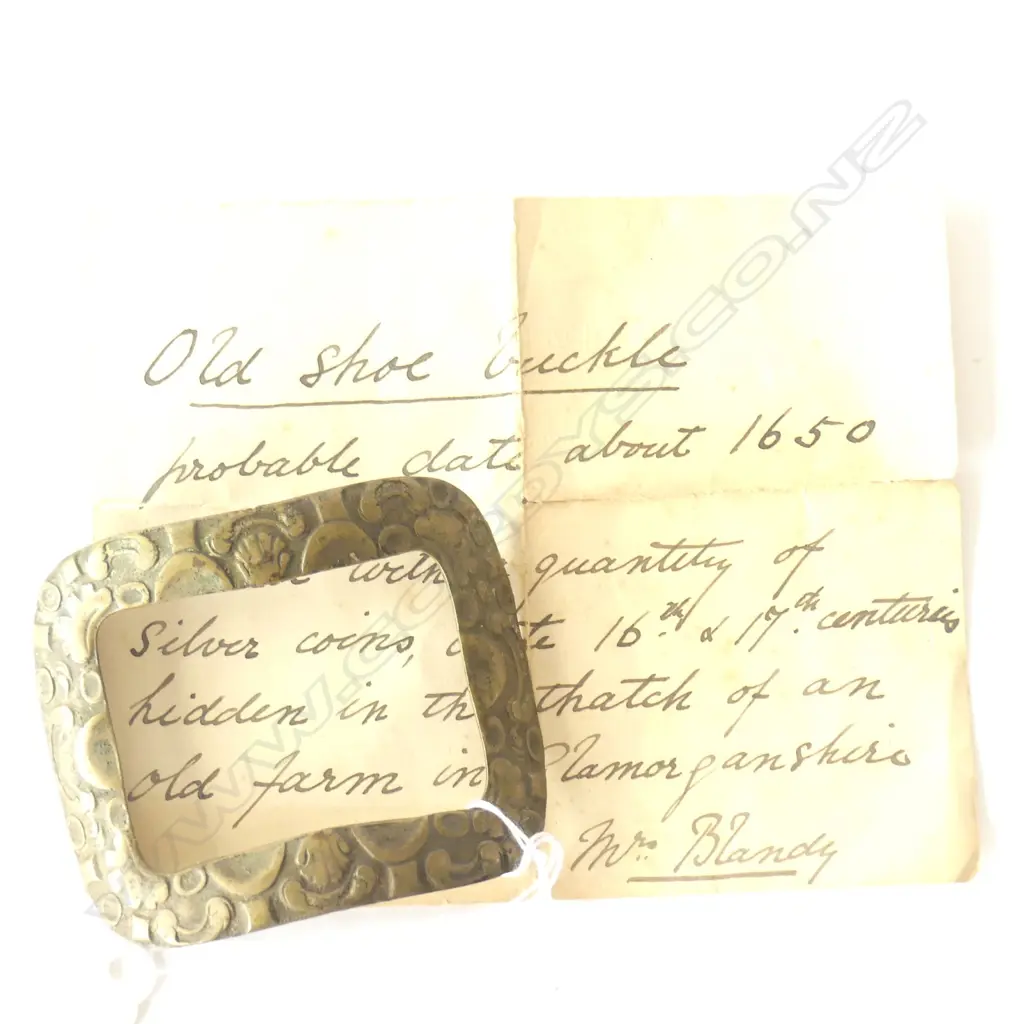 Old shoe buckle
probable date about 1650
quantity of
silver coins, 16th & 17th centuries
hidden in the thatch of an
old farm in Glamorganshire
Mrs. Blandy
WWW.CORDYS.CO.NZ